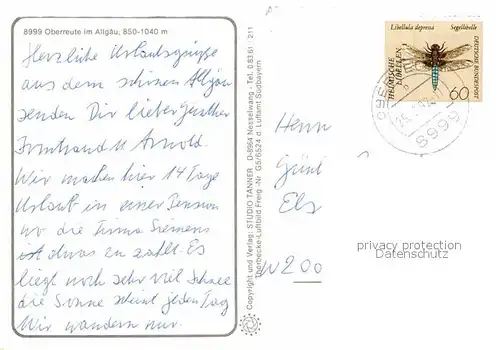 8999 Oberreute im Allgäu, 850-1040 m
Herzliche Urlaubsgrüsse
aus dem schönen Allgäu
senden Dir lieber Günther
Irmtraud u Arnold.
Wir machen hier 14 Tage
Urlaub in einer Pension
wo die Firma Siemens
etwas zu zahlt. Es
liegt noch sehr viel Schnee
die Sonne scheint jeden Tag
Wir wandern nur.
Copyright und Verlag: STUDIO TANNER D-8964 Nesselwang - Tel. 0 83 61 / 211
Luftbild Freig.-Nr. G5/6524 d. Luftamt Südbayern
Libellula depressa Segellibelle
HEIMISCHE LIBELLEN
DEUTSCHE BUNDESPOST
60
8999
Herrn
Günt
Els
W 200
privacy protection
Datenschutz